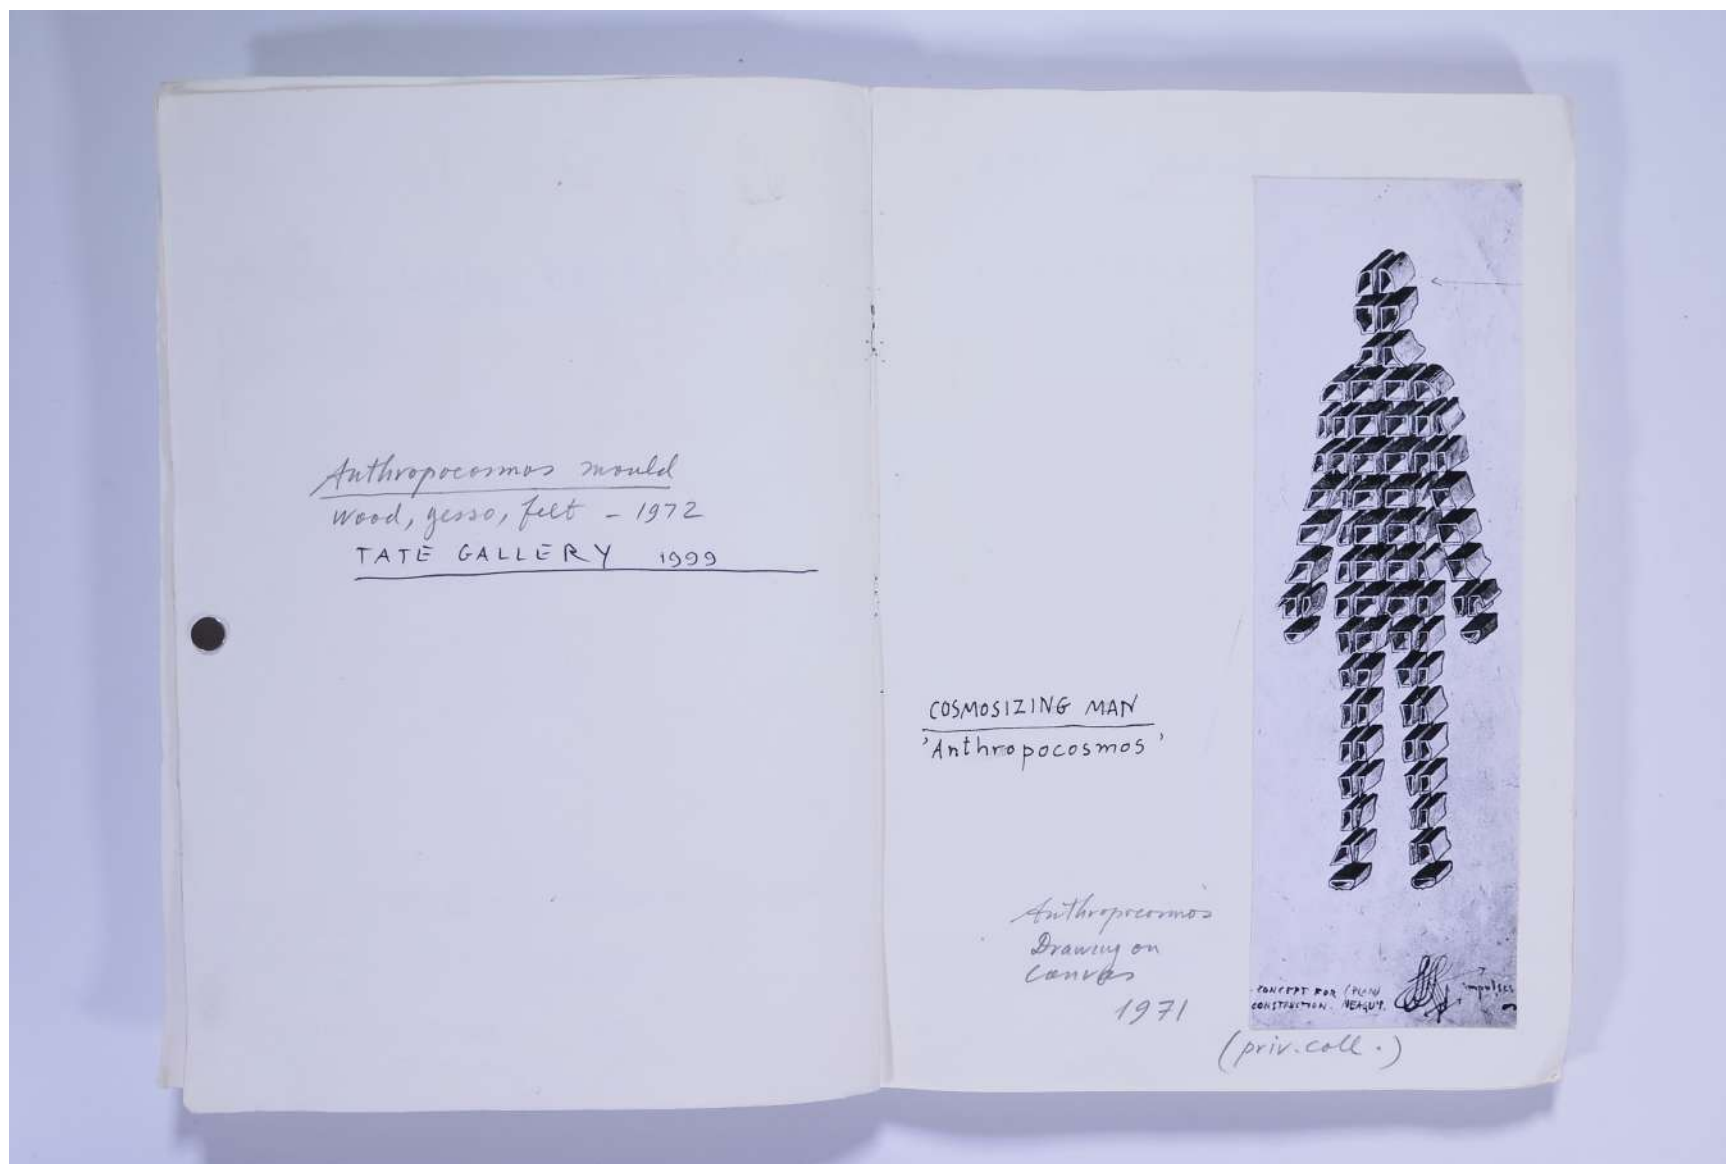 Anthropocosmos mould
Wood, gesso, felt – 1972
TATE GALLERY 1999
COSMOSIZING MAN
'Anthropocosmos'
Anthropocosmos
Drawing on
Canvas
1971
CONCEPT FOR
CONSTRUCTION. NEAGU.
impulses
(priv. coll.)